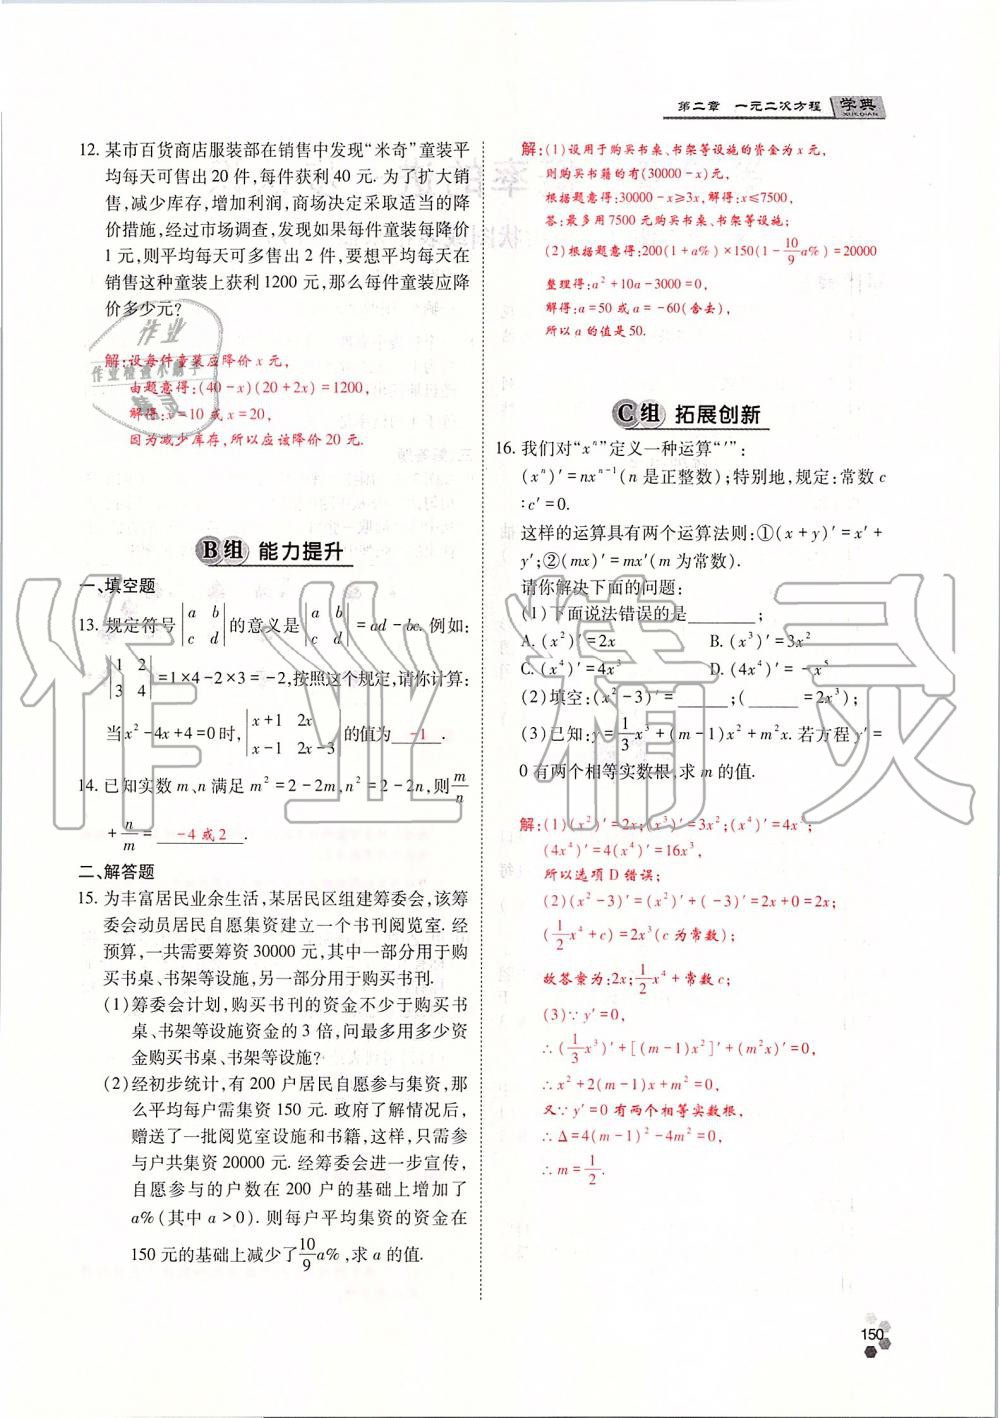 第二章　一元二次方程　学典
XUEDIAN
12. 某市百货商店服装部在销售中发现“米奇”童装平
均每天可售出 20 件,每件获利 40 元. 为了扩大销
售,减少库存,增加利润,商场决定采取适当的降
价措施,经过市场调查,发现如果每件童装每降价
1 元,则平均每天可多售出 2 件,要想平均每天在
销售这种童装上获利 1200 元,那么每件童装应降
价多少元?
解:设每件童装应降价 x 元,
由题意得:(40-x)(20+2x)=1200,
解得:x=10 或 x=20,
因为减少库存,所以应该降价 20 元.
B组 能力提升
一、填空题
13. 规定符号 |a b; c d| 的意义是 |a b; c d| =ad-bc. 例如:
|1 2; 3 4| =1×4-2×3=-2,按照这个规定,请你计算:
当 x²-4x+4=0 时, |x+1 2x; x-1 2x-3| 的值为 -1 .
14. 已知实数 m、n 满足 m²=2-2m,n²=2-2n,则 m/n
+ n/m = -4 或 2 .
二、解答题
15. 为丰富居民业余生活,某居民区组建筹委会,该筹
委会动员居民自愿集资建立一个书刊阅览室. 经
预算,一共需要筹资 30000 元,其中一部分用于购
买书桌、书架等设施,另一部分用于购买书刊.
(1)筹委会计划,购买书刊的资金不少于购买书
桌、书架等设施资金的 3 倍,问最多用多少资
金购买书桌、书架等设施?
(2)经初步统计,有 200 户居民自愿参与集资,那
么平均每户需集资 150 元. 政府了解情况后,
赠送了一批阅览室设施和书籍,这样,只需参
与户共集资 20000 元. 经筹委会进一步宣传,
自愿参与的户数在 200 户的基础上增加了
a%(其中 a>0). 则每户平均集资的资金在
150 元的基础上减少了 10/9 a%,求 a 的值.
解:(1)设用于购买书桌、书架等设施的资金为 x 元,
则购买书籍的有(30000-x)元,
根据题意得:30000-x≥3x,解得:x≤7500,
答:最多用 7500 元购买书桌、书架等设施;
(2)根据题意得:200(1+a%)×150(1- 10/9 a%)=20000
整理得:a²+10a-3000=0,
解得:a=50 或 a=-60(舍去),
所以 a 的值是 50.
C组 拓展创新
16. 我们对“xⁿ”定义一种运算“′”:
(xⁿ)′=nxⁿ⁻¹(n 是正整数);特别地,规定:常数 c
:c′=0.
这样的运算具有两个运算法则:①(x+y)′=x′+
y′;②(mx)′=mx′(m 为常数).
请你解决下面的问题:
(1)下面说法错误的是 ______ ;
A. (x²)′=2x　B. (x³)′=3x²
C. (x⁴)′=4x³　D. (4x⁴)′=-x⁵
(2)填空:(x²-3)′= ______ ;( ______ =2x³);
(3)已知:y= 1/3 x³+(m-1)x²+m²x. 若方程 y′=
0 有两个相等实数根,求 m 的值.
解:(1)(x²)′=2x;(x³)′=3x²;(x⁴)′=4x³;
(4x⁴)′=4(x⁴)′=16x³,
所以选项 D 错误;
(2)(x²-3)′=(x²)′+(-3)′=2x+0=2x;
( 1/2 x⁴+c)=2x³(c 为常数);
故答案为:2x; 1/2 x⁴+常数 c;
(3)∵y′=0,
∴( 1/3 x³)′+[(m-1)x²]′+(m²x)′=0,
∴x²+2(m-1)x+m²=0,
又∵y′=0 有两个相等实数根,
∴Δ=4(m-1)²-4m²=0,
∴m= 1/2 .
150
作业
作业检查小助手
精灵
作业精灵